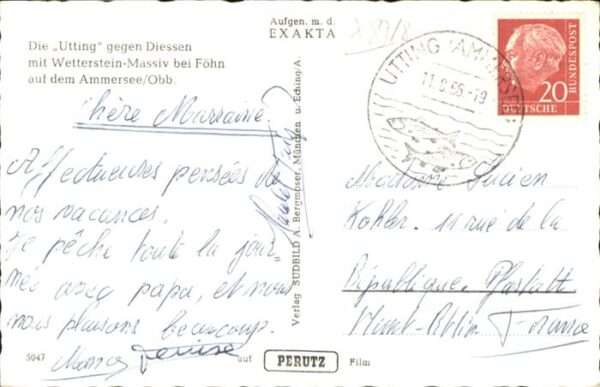 Aufgen. m. d.
EXAKTA
Die „Utting" gegen Diessen
mit Wetterstein-Massiv bei Föhn
auf dem Ammersee/Obb.
Chère Marraine
Affectueuses pensées de
nos vacances.
Je pêche toute la jour
née avec papa, et nous
nous plaisons beaucoup.
Denise
5047
Verlag SÜDBILD A. Bergmoser, München u. Eching/A.
auf PERUTZ Film
UTTING (AMMERSEE)
11.8.56-19
20
DEUTSCHE
BUNDESPOST
Madame Lucien
Kohler. 11 rue de la
République. Pfastatt
Haut-Rhin France